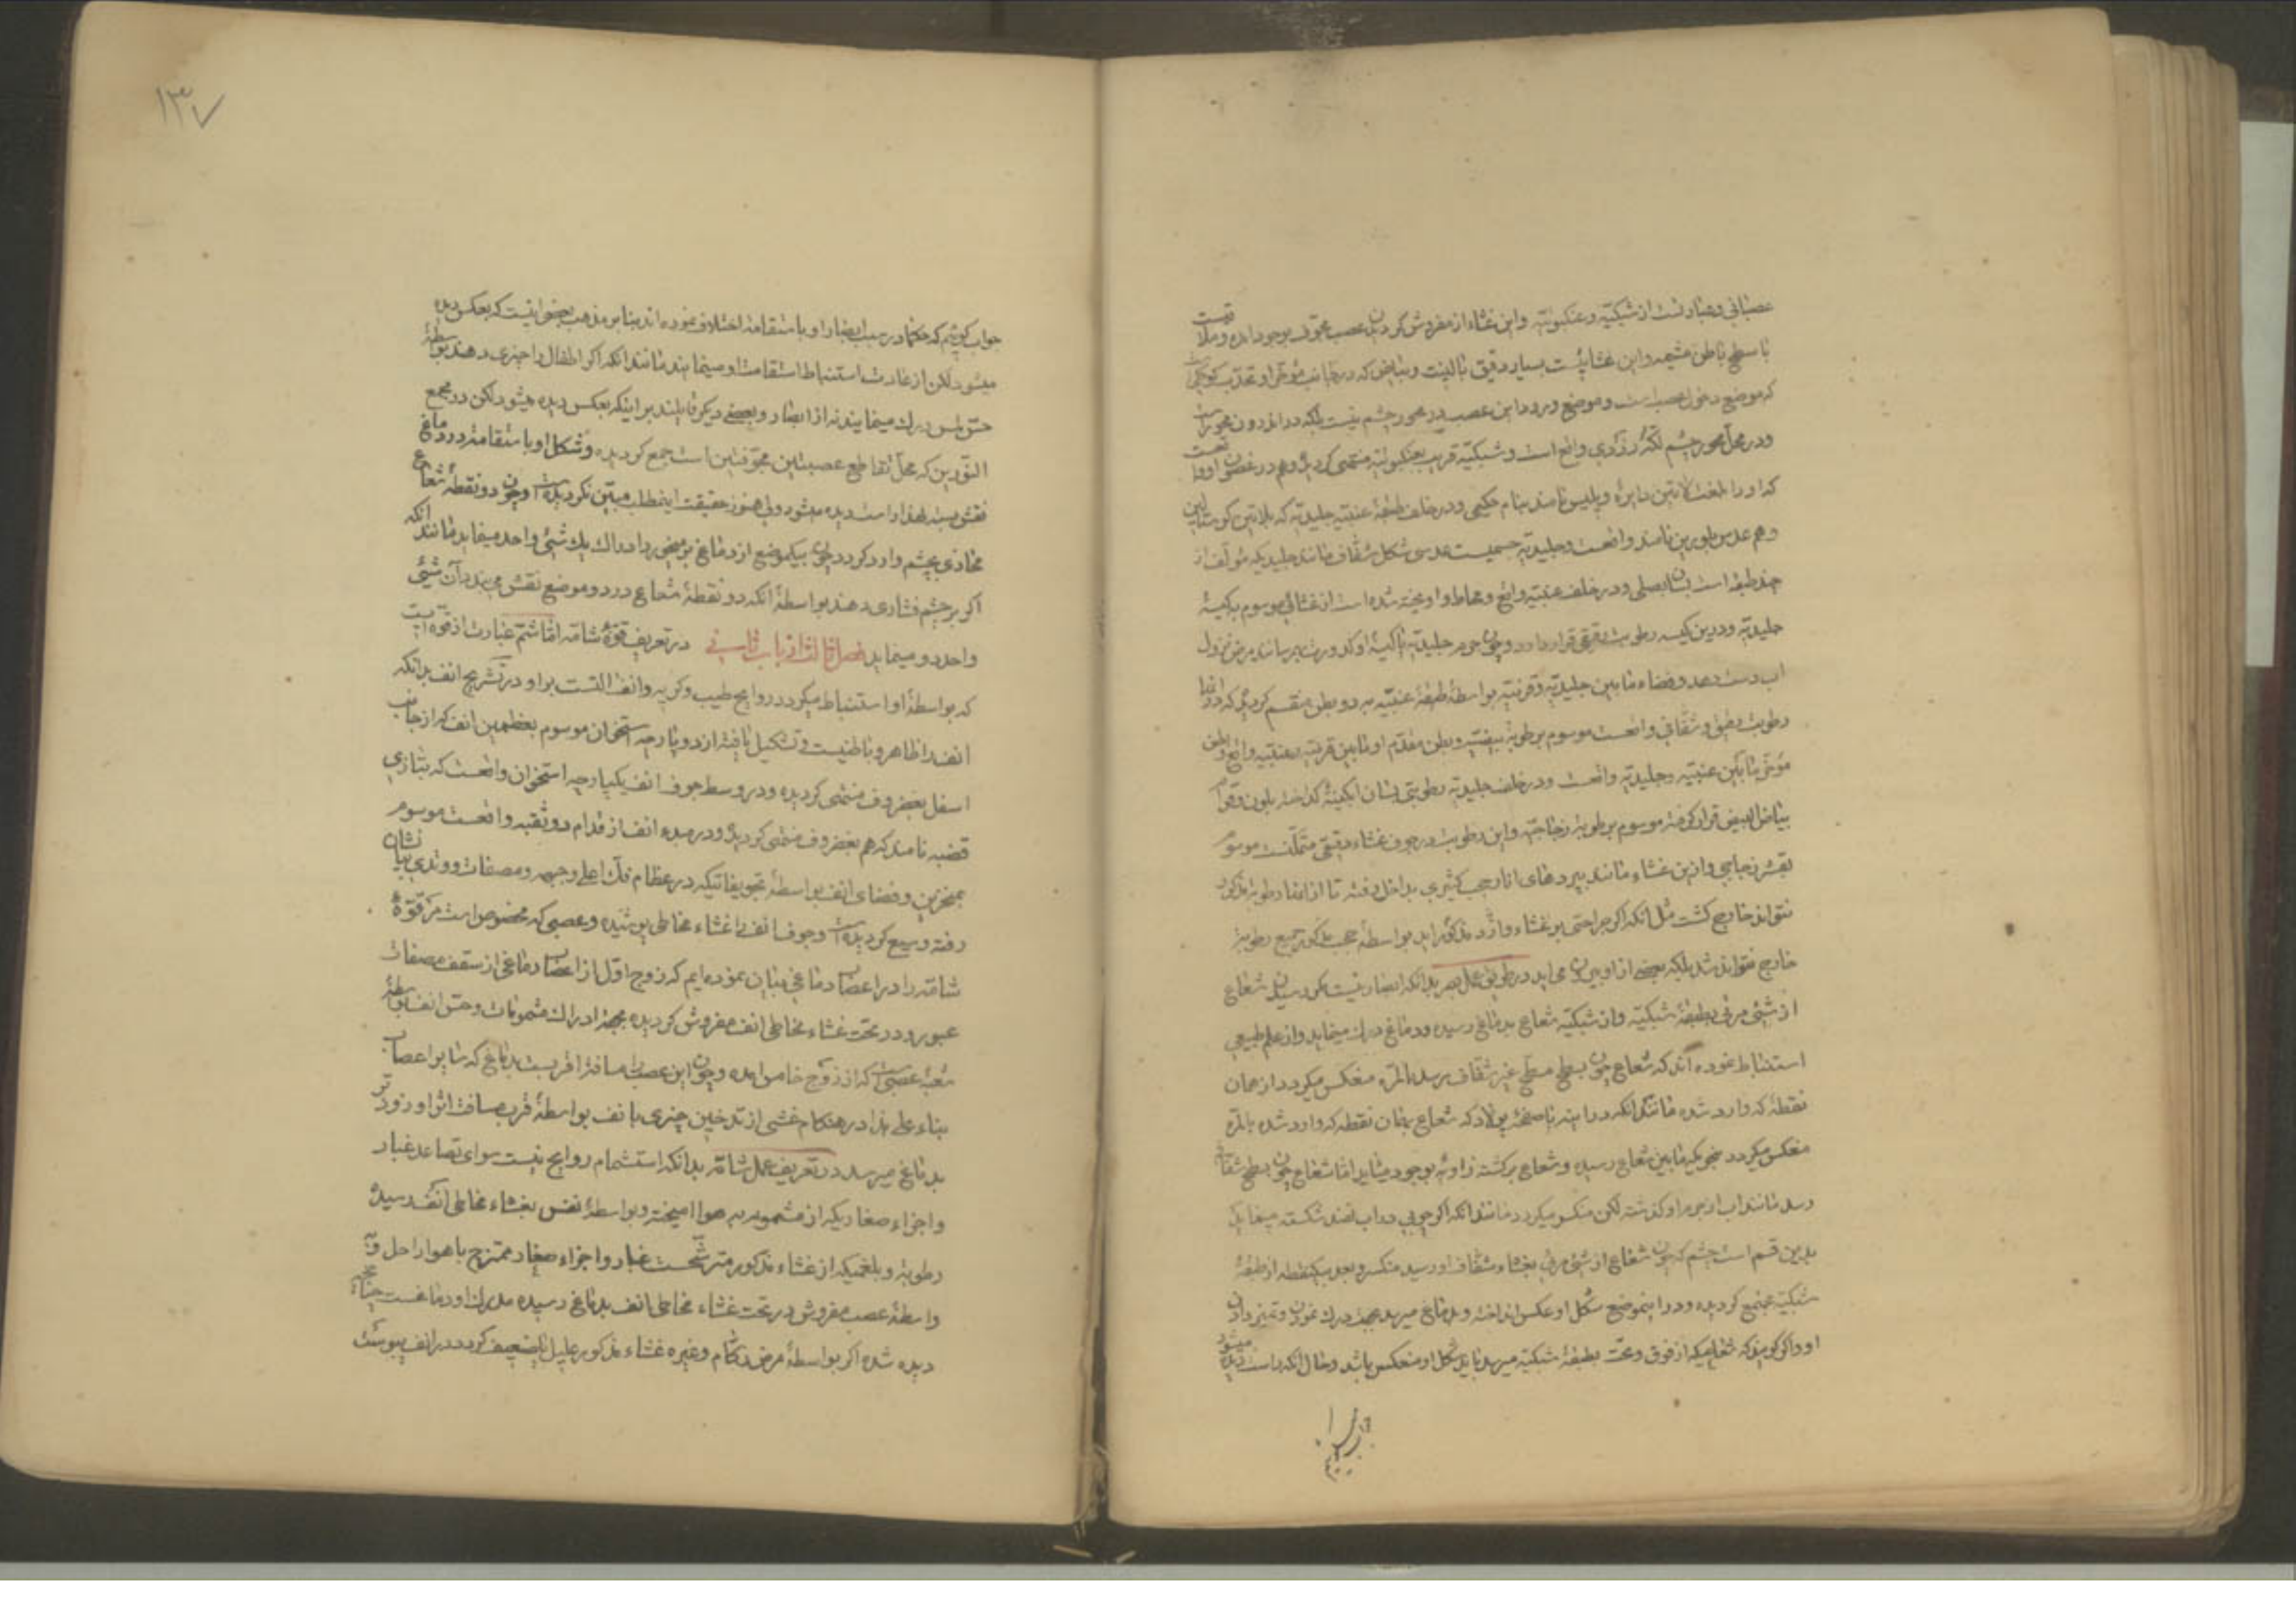 عصبانی و عبارتست از شبکیّه و عنکبوتیّه واین غشاء از مفروش کردیدن عصب مجوّف بوجود امده وملاقیست
با سطح باطن مشیمه واین غشائیست بسیار دقیق با لینت وبیاض که در جانب مؤخر او تحدّب کوچکی است
که موضع دخول عصب است وموضع ورود این عصب در محور چشم نیست بلکه در اندرون محور است
ودر محل محور چشم لکّهٔ زردی واقع است وشبکیّه قریب بعنکبوتیّه منتهی کردیده وهم در غضون او واقعست
که او را بلغت لاتین دایره ویلیس نامند بنام حکیمی ودر خلف طبقهٔ عنبیّه جلیدیّه که بلاتین کریستالین
وهم عدس بلورین نامند واقعست وجلیدیّه جسمیست عدسی شکل شفّاف مانند جلیدیکه مؤلف از
چند طبقه است بسان بصلی ودر خلف عنبیّه واقع ومحاط واویخته شده است از غشائی موسوم بکیسهٔ
جلیدیّه ودرین کیسه رطوبت رقیقی قرار دارد وچون جرم جلیدیّه یا کیسهٔ او کدورت بهم رسانند مرض نزول
اب دست دهد وفضاء مابین جلیدیّه وقرنیّه بواسطهٔ طبقهٔ عنبیّه به دو بطن منقسم کردیده که در انها
رطوبت رقیق وشفّافی واقعست موسوم برطوبة بیضیّه وبطن مقدّم او مابین قرنیّه وعنبیّه واقع وبطن
مؤخر مابین عنبیّه وجلیدیّه واقعست ودر خلف جلیدیّه رطوبتی بسان ابکینهٔ کداخته بلون وقوام
بیاض البیض قرار کرفته موسوم برطوبة زجاجیّه واین رطوبت در جوف غشاء دقیقی متمکّنست موسوم
بقشر زجاجی وازین غشاء مانند پردهای انار حجب کثیری بداخل رفته تا از انها رطوبة مذکور
نتواند خارج کشت مثل انکه اکر جراحتی بر غشاء وارد مذکور اید بواسطهٔ حجب مذکور جمیع رطوبة
خارج نتواند شد بلکه بعضی از او بیرون می اید در طریق عمل بصر بدانکه ابصار نیست مکر رسیدن شعاع
از شیئ مرئی بطبقهٔ شبکیّه واز شبکیّه شعاع بدماغ رسیده ودماغ درک مینماید واز علم طبیعی
استنباط نموده اند که شعاع چون بسطح مسطح غیر شفّاف برسد بالمرّه منعکس میکردد از همان
نقطهٔ که وارد شده مانند انکه در اینه یا صفحهٔ پولاد که شعاع بهمان نقطه که وارد شده بالمرّه
منعکس میکردد بنحویکه مابین شعاع رسیده وشعاع برکشته زاویهٔ بوجود میاید امّا شعاع چون بسطح شفّاف
رسد مانند اب از جرم او کذشته لکن منکسر میکردد مانند انکه اکر چوبی در اب نصب شکسته مینماید
بدین قسم است چشم که چون شعاع از شیئ مرئی بغشاء شفّاف او رسید منکسر وبعد بیکنقطه از طبقهٔ
شبکیّه مجتمع کردیده ودر اینموضع شکل او عکس انداخته وبدماغ میرسد بجهة درک نمودن وتمیز دادن
او واکر کویند که شعاعیکه از فوق وتحت بطبقهٔ شبکیّه میرسد باید شکل او منعکس باشد وحال انکه راست دیده میشود
۱۳۷
جواب کوئیم که حکما در سبب ابصار او باستقامة اختلاف نموده اند بنا بر مذهب بعضی اینست که بعکس دیده
میشود لکن از عادت استنباط استقامت او مینمایند مانند انکه اکر اطفال را چیزی دهند بواسطهٔ
حسّ لمس درک مینمایند نه از ابصار وبعضی دیکر قایلند بر اینکه بعکس دیده میشود لکن در مجمع
النّورین که محل تقاطع عصبتین مجوّفتین است جمع کردیده وشکل او باستقامة در دماغ
نقش بسته لهذا راست دیده میشود ولی هنوز حقیقت اینمطلب مبیّن نکردیده است وچون دو نقطهٔ شعاع
محاذی بچشم وارد کردد چون بیکموضع از دماغ بر میخورد ادراک یک شیئ واحد مینماید مانند انکه
اکر بر چشم فشاری دهند بواسطهٔ انکه دو نقطهٔ شعاع در دو موضع نقش می بندد آن شیئ
واحد دو مینماید فصل ثالث از باب ثانی در تعریف قوّهٔ شامّه امّا شمّ عبارت از قوّه ایست
که بواسطهٔ او استنباط میکردد روایح طیب وکریه وانف التست بر او در تشریح انف بدانکه
انف را ظاهر وباطنیست وتشکیل یافته از دو پارچه استخوان موسوم بعظمین انف که از جانب
اسفل بغضروف منتهی کردیده ودر وسط جوف انف یکپارچه استخوان واقعست که بتازی
قصبه نامند که هم بغضروف منتهی کردیده ودر مبدء انف از قدام دو ثقبه واقعست موسوم
بمنخرین وفضای انف بواسطهٔ تجویفاتیکه در عظام فک اعلی وجبهه ومصفات ووتدی بیان شان
رفته وسیع کردیده است وجوف انف را غشاء مخاطی پوشیده وعصبی که مخصوص است مر قوّهٔ
شامّه را در اعصاب دماغی بیان نموده ایم که زوج اوّل از اعصاب دماغی از سقف مصفات
عبور ودر تحت غشاء مخاطی انف مفروش کردیده بجهة ادراک مشمومات وحسّ انف بواسطهٔ
شعبهٔ عصبی است که از زوج خامس امده وچون این عصب را مسافة اقربست بدماغ که سایر اعصاب
بناء علی هذا در هنکام غشی از تدخین چیزی بانف بواسطهٔ قرب مسافت اثر او زودتر
بدماغ میرسد در تعریف عمل شامّه بدانکه استشمام روایح نیست سوای تصاعد غبار
واجزاء صغاریکه از مشمومه به هوا امیخته وبواسطهٔ تنفس بغشاء مخاطی انف رسیده
رطوبة وبلغمیکه از غشاء مذکور مترشّحست غبار واجزاء صغار ممتزج با هوا را حل وبه
واسطهٔ عصب مفروش در تحت غشاء مخاطی انف بدماغ رسیده مدرک او دماغست چنانچه
دیده شده اکر بواسطهٔ مرض زکام وغیره غشاء مذکور علیل یا ضعیف کردد در انف یبوست